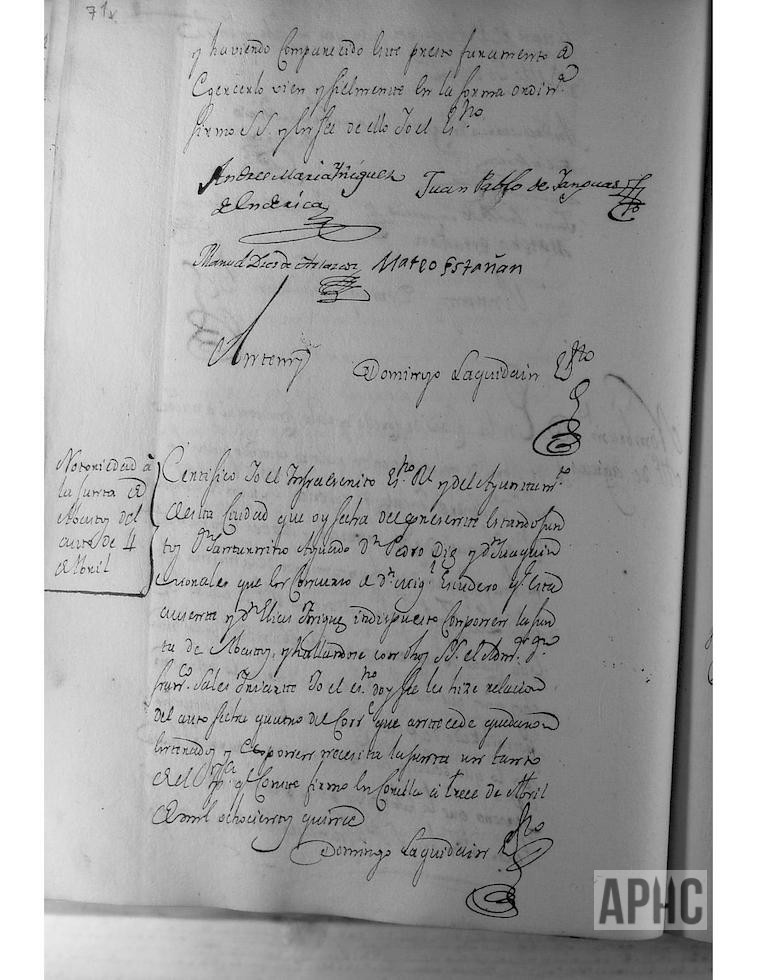 71v
y haviendo Comparecido este presto Juramento de
Egercerlo vien y fielmente en la forma ordin.ª
firmo S.S. y en fee de ello Yo el Es.no
Andres Maria Iñiguez
de Enderica
Juan Pablo de Tanguas
Manuel Diez de
Mateo Estañan
Antemy
Domingo Laquidain Es.no
Notoriedad à
la Junta de
Abastos del
auto de 4
de Abril
Certifico Yo el Infraescrito Es.no Rl y del Ayuntam.to
de esta Ciudad que oy fecha del presente estando Jun
tos Dn Saturnino Aguado Dn Pedro Diez y Dn Juaquin
que los Comunio a Dn Escudero qe esta
ausente y Dn Elias Iñiguez indispuesto Componen la Jun
ta de Abastos, y hallandose con S.S. el Adm.or
Fran.co Sales Yo el es.no doy fee les hize relacion
del auto fecha quatro del Corr.te que antecede quedaron
enterados y exponen necesita la Junta un tanto
de el qe Conste firmo en Corella a trece de Abril
de mil ochocientos quince
Domingo Laquidain Es.no
APHC